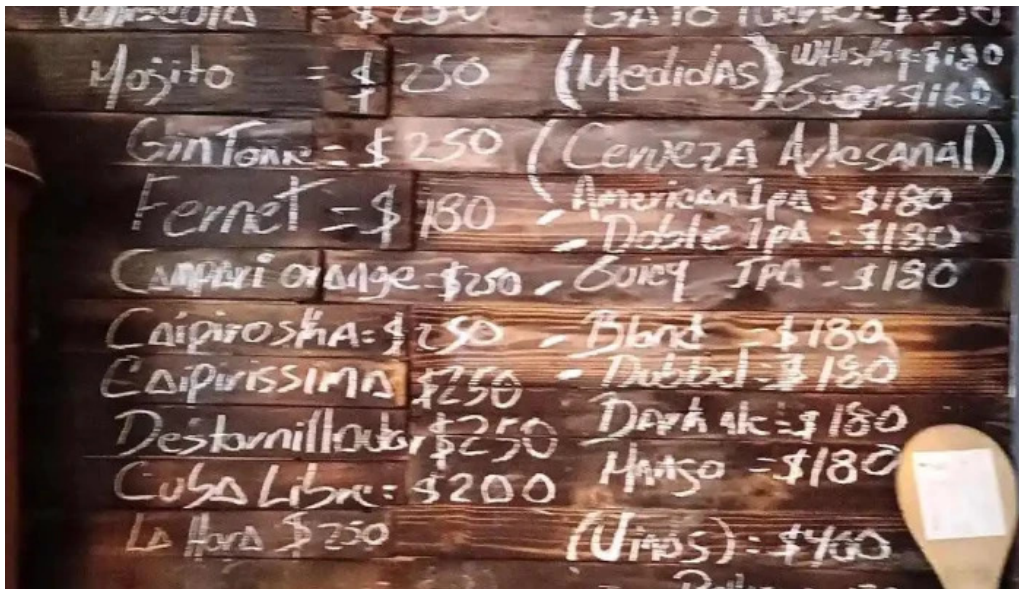 = $250
Mojito = $250
GinTonic = $250
Fernet = $180
Campari orange = $250
Caipiroska = $250
Caipirissima $250
Destornillador $250
Cuba Libre = $200
La Hora $250
(Medidas) Whisky $180
$160
(Cerveza Artesanal)
- American Ipa = $180
- Doble Ipa = $180
- Guicy IPA = $180
- Blond = $180
- Dubbel = $180
Dark ale = $180
Mango = $180
(Vinos) = $400